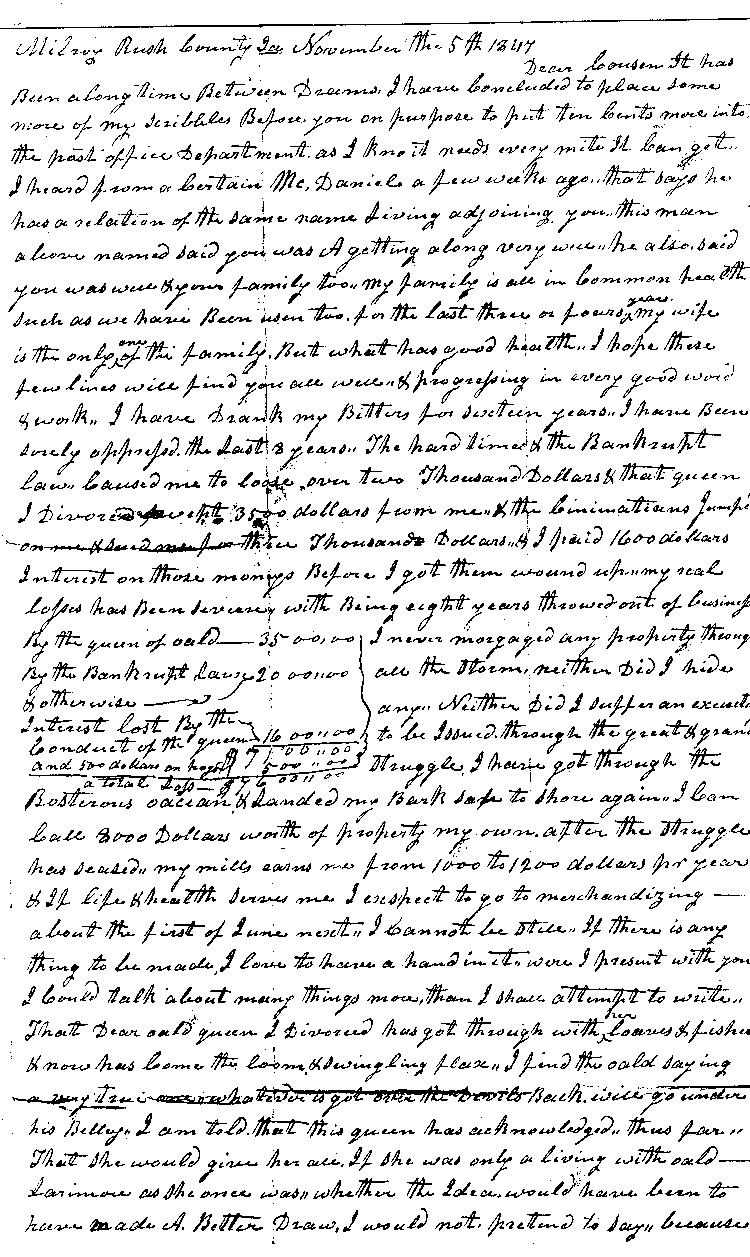 Milroy Rush County Ia November the 5th 1847
Dear Cousen It has
Been a long time Between Dreams. I have Concluded to place some
more of my scribbles Before you on purpose to put ten Cents more into
the post office Department. as I kno it needs every mite It Can get..
I heard from a Certain Mc. Daniels a few weeks ago. that says he
has a relation of the same name Living adjoining you. this man
above named said you was A getting along very well.. he also said
you was well & your family too.. my family is all in Common health
such as we have Been usen too. for the last three or fours years my wife
is the only one of the family. But what has good health.. I hope these
few lines will find you all well.. & progressing in every good word
& work.. I have Drank my Bitters for sixteen years.. I have Been
sorely oppressd. the Last 8 years.. The hard times & the Bankrupt
law. Caused me to loose over two Thousand Dollars & that queen
I Divorced swept 3500 dollars from me.. & the Cincinnatians Jumpd
on me & sued me for three Thousands Dollars.. & I paid 1600 dollars
Interest on those moneys Before I got them wound up.. my real
losses has Been severe with Being eight years throwed out of business
By the queen of oald — 3500,00 I never morgaged any property through
By the Bankrupt Laws 2000,00 all the storm, neither Did I hide
& otherwise — any.. Neither Did I suffer an execution
Interest lost By the
Conduct of the queen 1600,00 to be Issued. through the great & grand
$7100,00
and 500 dollars on hogs 500,00 struggle, I have got through the
a total Loss — $7600,00
Bosterous oacean & Landed my Bark safe to shore again.. I Can
Call 8000 Dollars worth of property my own. after the struggle
has seased.. my mills earns me from 1000 to 1200 dollars pr year
& If life & health serves me I exspect to go to merchandizing —
about the first of June next.. I Cannot be still.. If there is any
thing to be made, I love to have a hand in it.. were I present with you
I Could talk about many things more, than I shall attempt to write..
That Dear oald queen I Divorced has got through with her loaves & fishes
& now has Come the loom & swingling flax.. I find the oald saying
a very true one what ever is got over the Devils Back. will go under
his Belley.. I am told. that this queen has acknowledged.. thus far..
That she would give her all. If she was only a living with oald —
Larimore as she once was.. whether the Idea. would have been to
have made A. Better Draw, I would not. pretend to say.. because